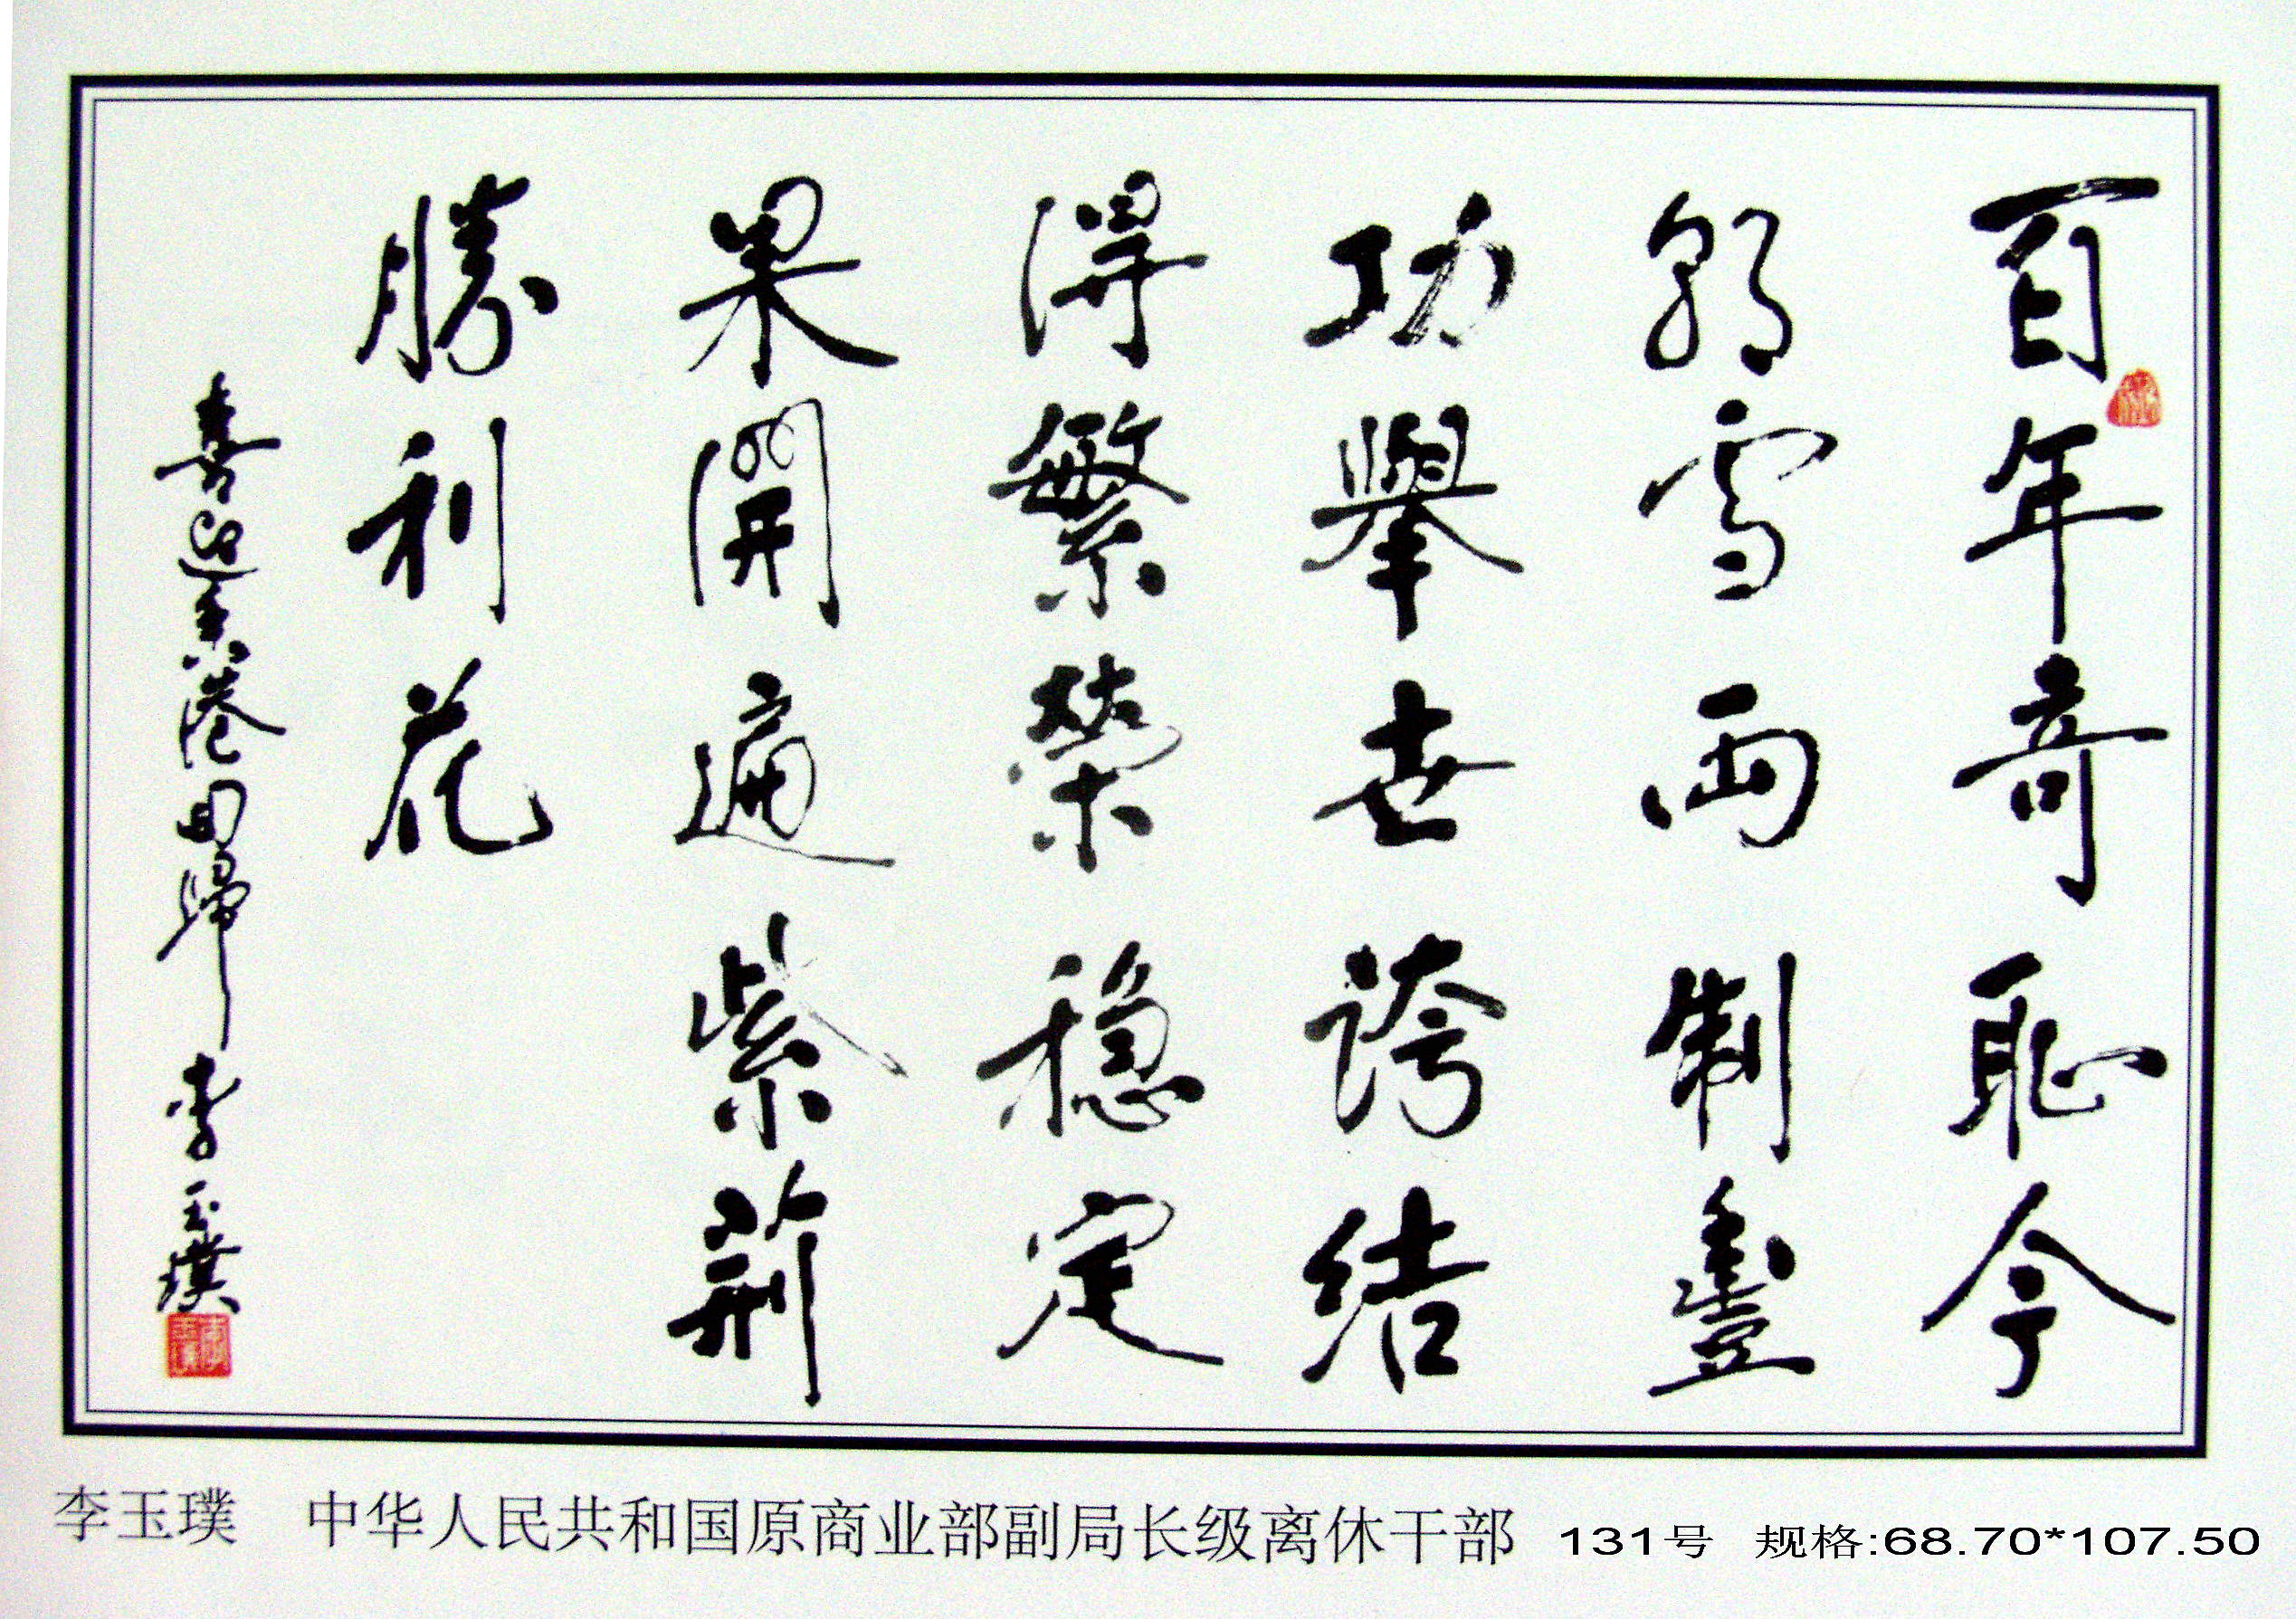 百年奇恥今
朝雪兩制豐
功舉世誇結
得繁榮穩定
果開遍紫荊
勝利花
喜迎香港回歸 李玉璞
李玉璞 中华人民共和国原商业部副局长级离休干部 131号 规格:68.70*107.50